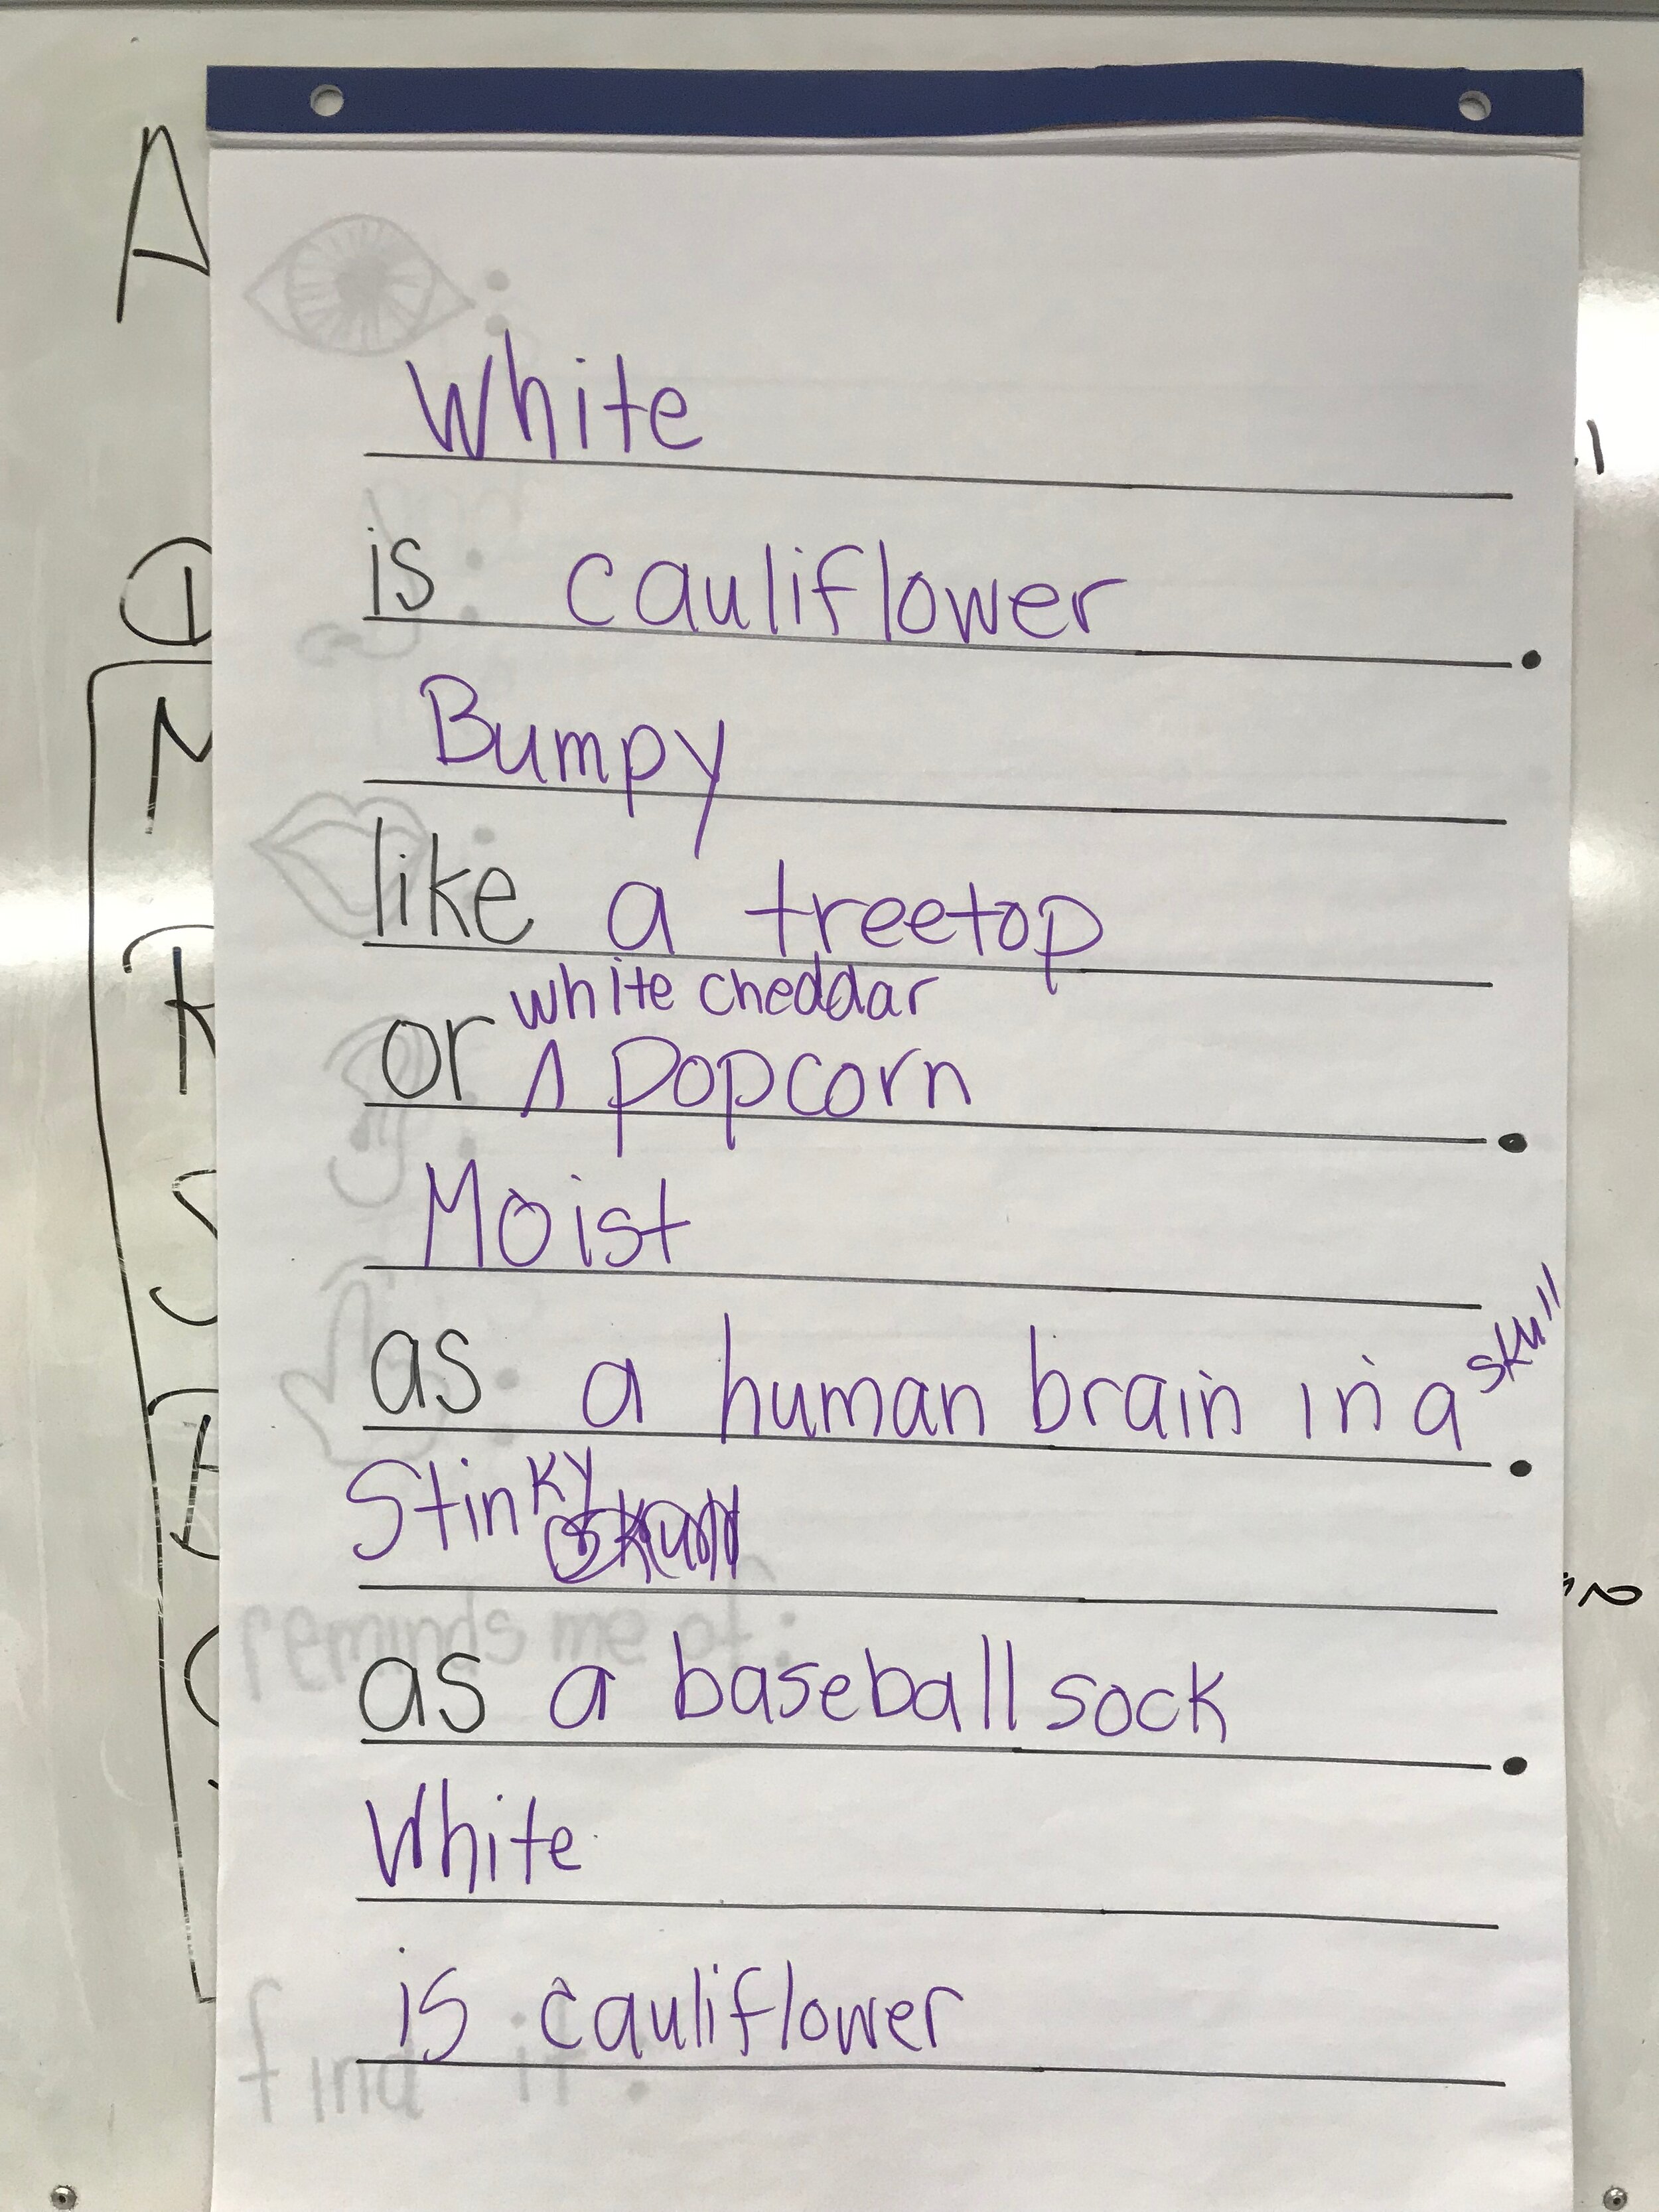 White
is cauliflower.
Bumpy
like a treetop
white cheddar
or ^ popcorn.
Moist
as a human brain in a skull.
Stinky
as a baseball sock.
White
is cauliflower
reminds me of:
find it: